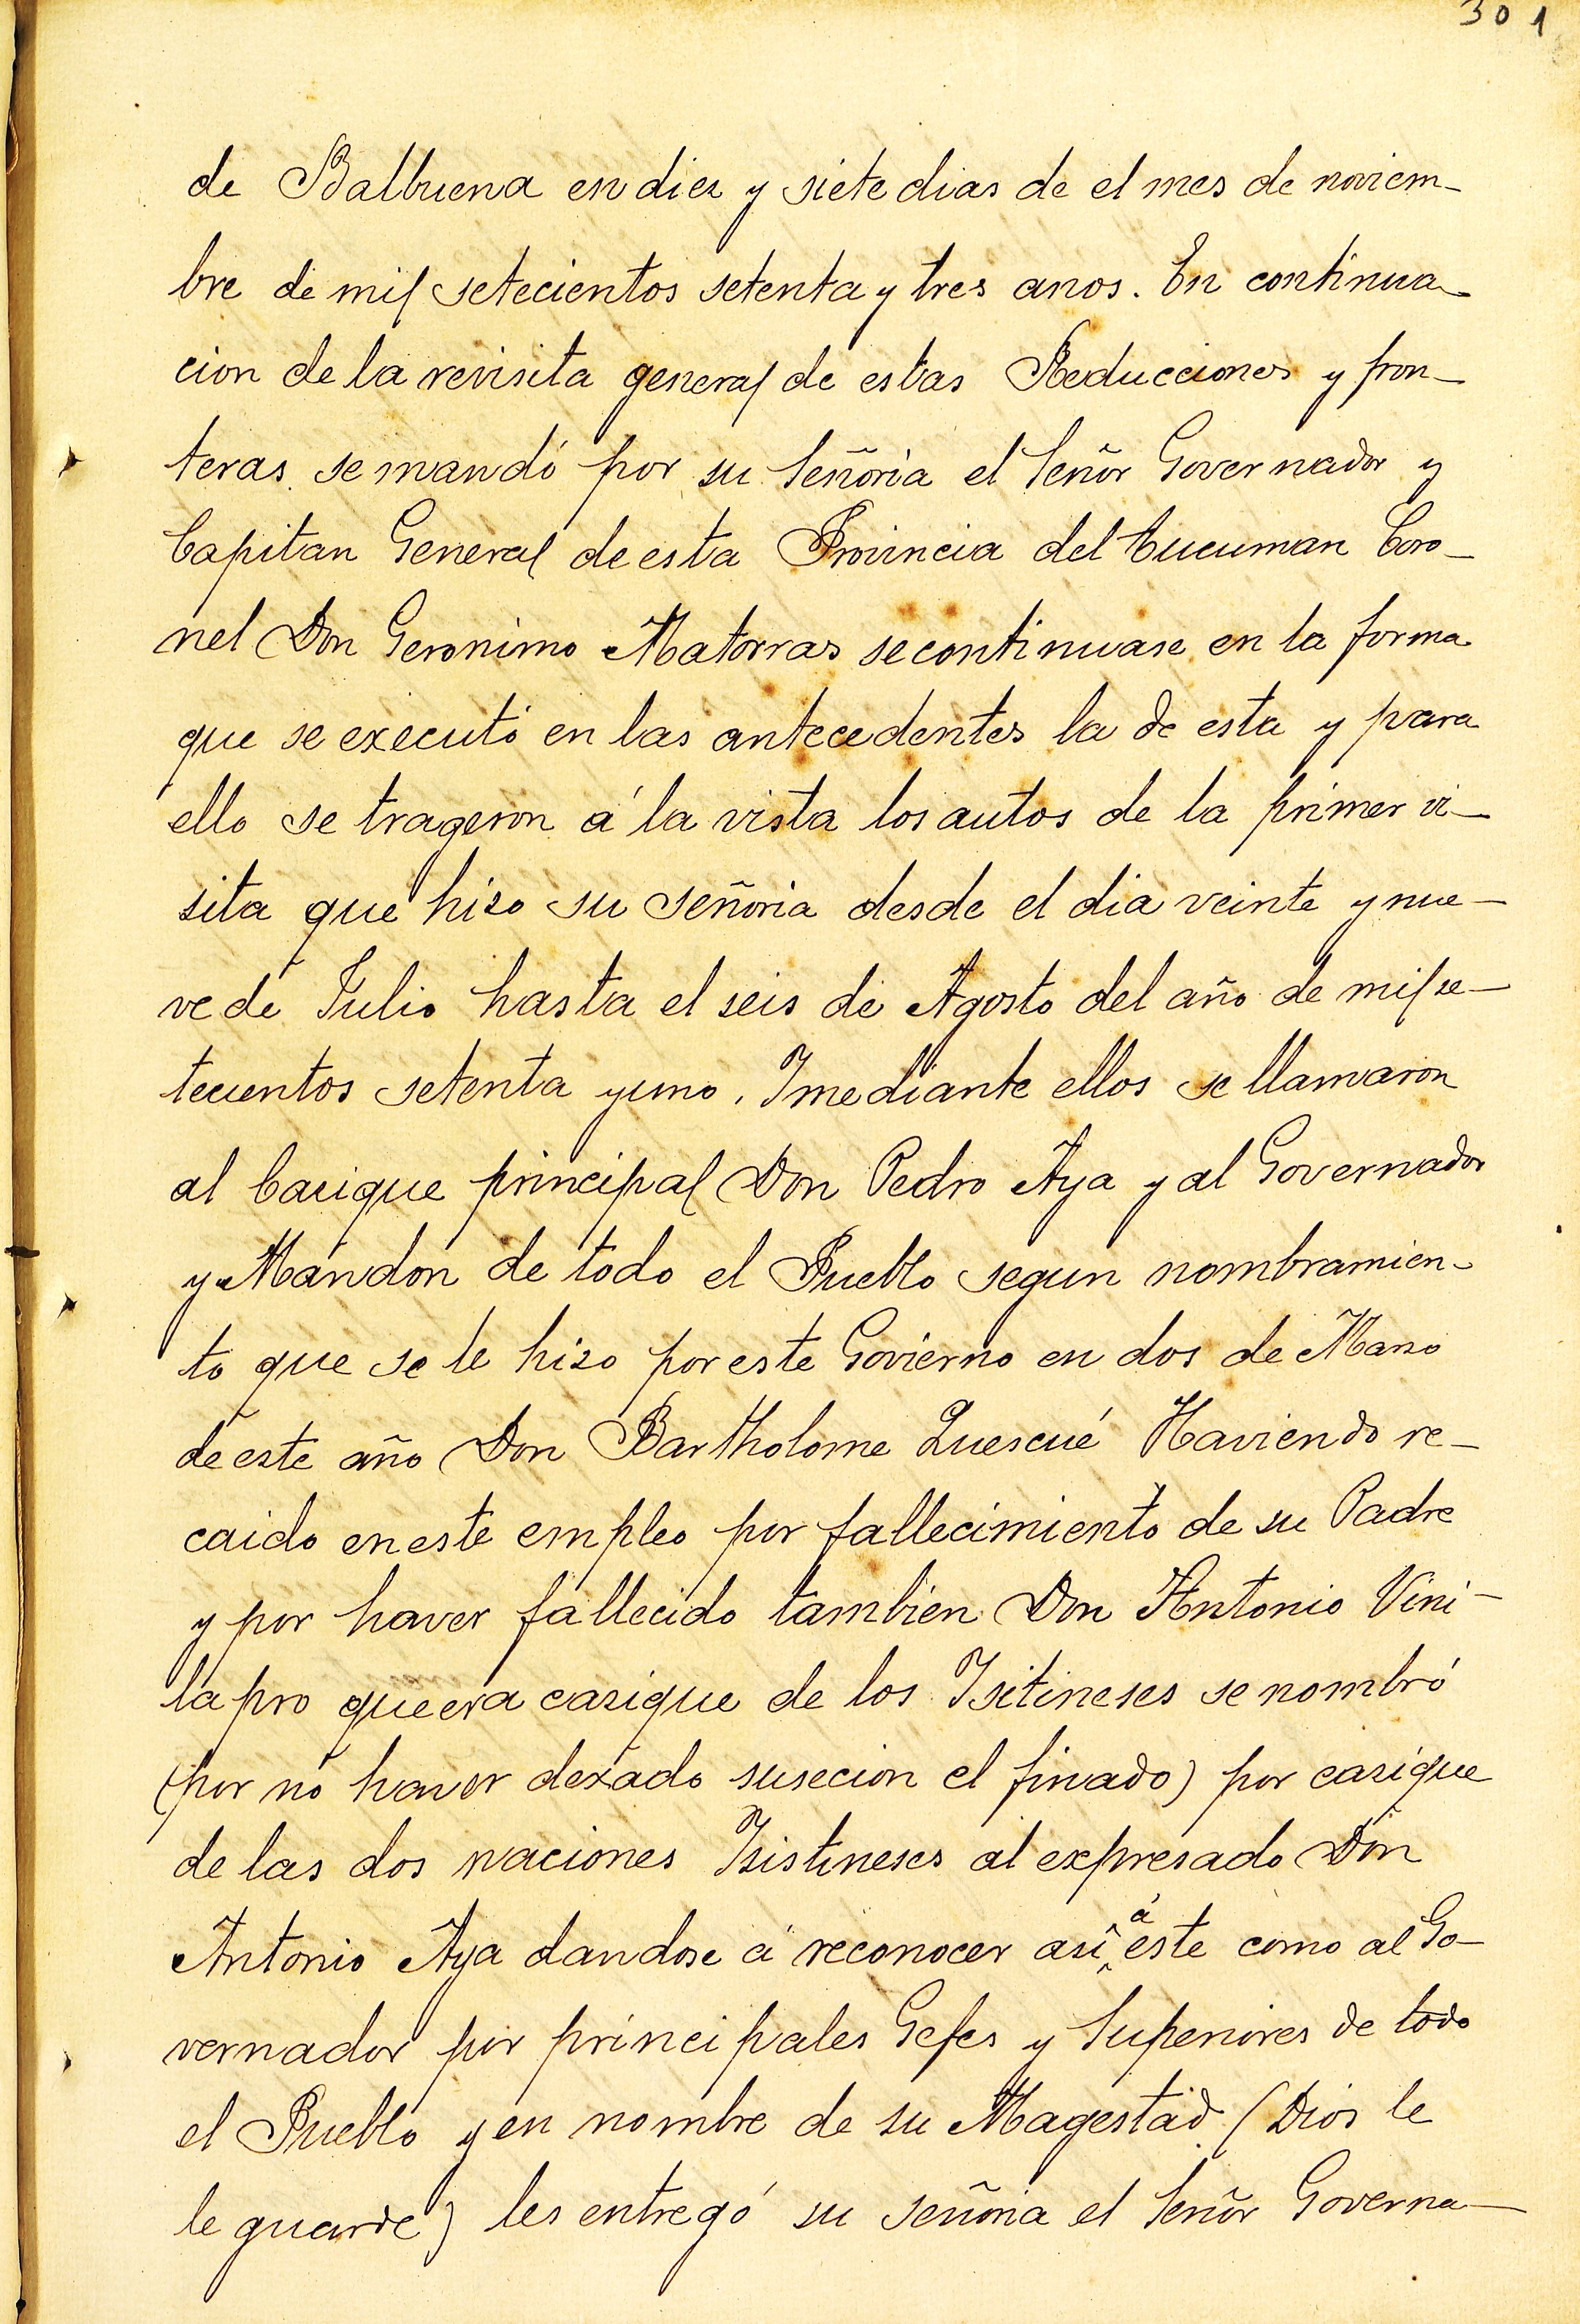 301
de Balbuena en diez y siete dias de el mes de noviem-
bre de mil setecientos setenta y tres anos. En continua-
cion de la revisita general de estas Reducciones y fron-
teras se mandó por su Señoria el Señor Governador y
Capitan General de esta Provincia del Tucuman Coro-
nel Don Geronimo Matorras se continuase en la forma
que se executó en las antecedentes la de esta y para
ello se trageron á la vista los autos de la primer vi-
sita que hizo su señoria desde el dia veinte y nue-
ve de Julio hasta el seis de Agosto del año de mil se-
tecientos setenta y uno. I mediante ellos se llamaron
al Cacique principal Don Pedro Aya y al Governador
y Mandon de todo el Pueblo segun nombramien-
to que se le hizo por este Govierno en dos de Marzo
de este año Don Bartholome Quescué Haviendo re-
caido en este empleo por fallecimiento de su Padre
y por haver fallecido tambien Don Antonio Vini-
lapro que era cazique de los Isitineses se nombró
(por no haver dexado susecion el finado) por cazique
de las dos naciones Isistineses al expresado Don
Antonio Aya dandose á reconocer asi á este como al Go-
vernador por principales Gefes y Superiores de todo
el Pueblo y en nombre de su Magestad (Dios le
le guarde) les entregó su señoria el Señor Governa-